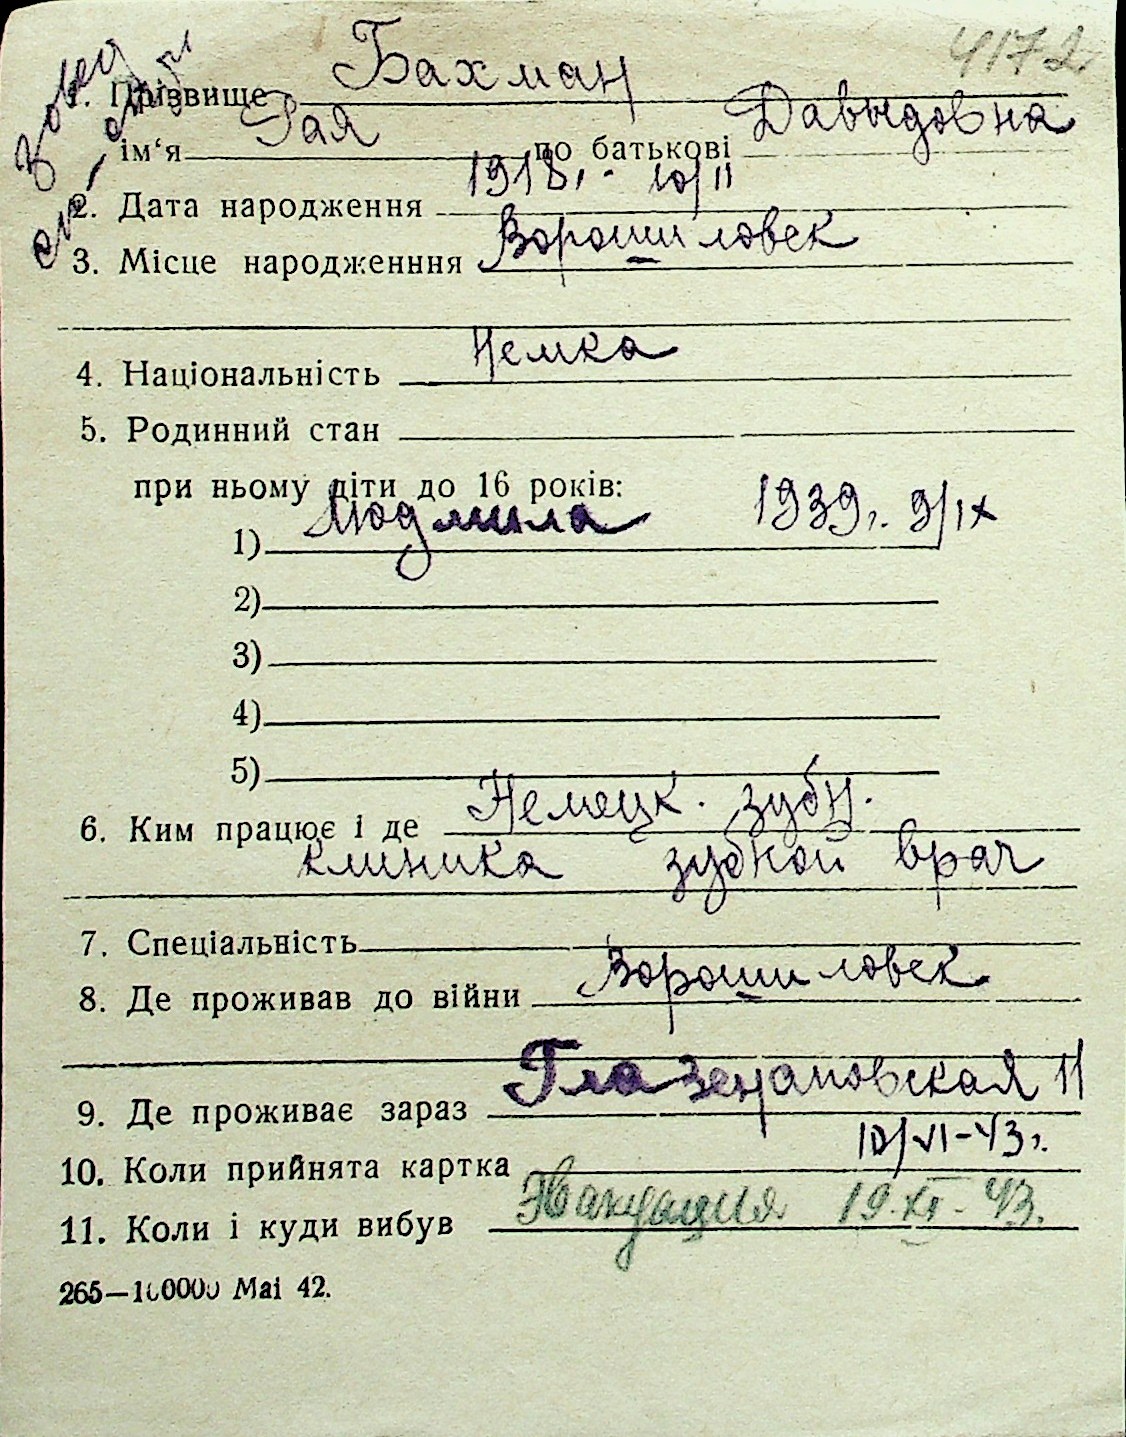 4172
1. Прізвище Бахман
ім‘я Рая по батькові Давыдовна
2. Дата народження 1918 г. 10/II
3. Місце народженння Ворошиловск
4. Національність Немка
5. Родинний стан
при ньому діти до 16 років:
1) Людмила 1939 г. 9/IX
2)
3)
4)
5)
6. Ким працює і де Немецк. зубн.
клиника зубной врач
7. Спеціальність
8. Де проживав до війни Ворошиловск
9. Де проживає зараз 11
10. Коли прийнята картка 10/VI-43 г.
11. Коли і куди вибув Эвакуация 19.XI-43.
265—100000 Mai 42.